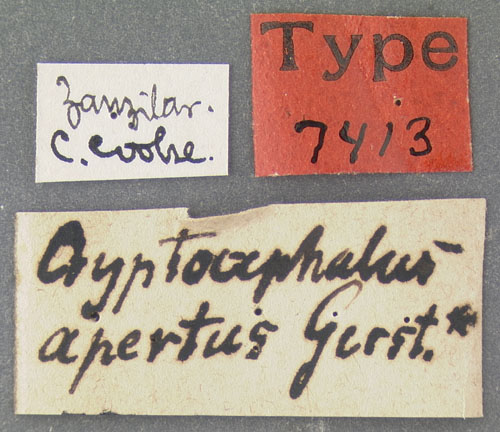 Zanzibar.
C. Cooke.
Type
7413
Cryptocephalus
apertus Gerst.*